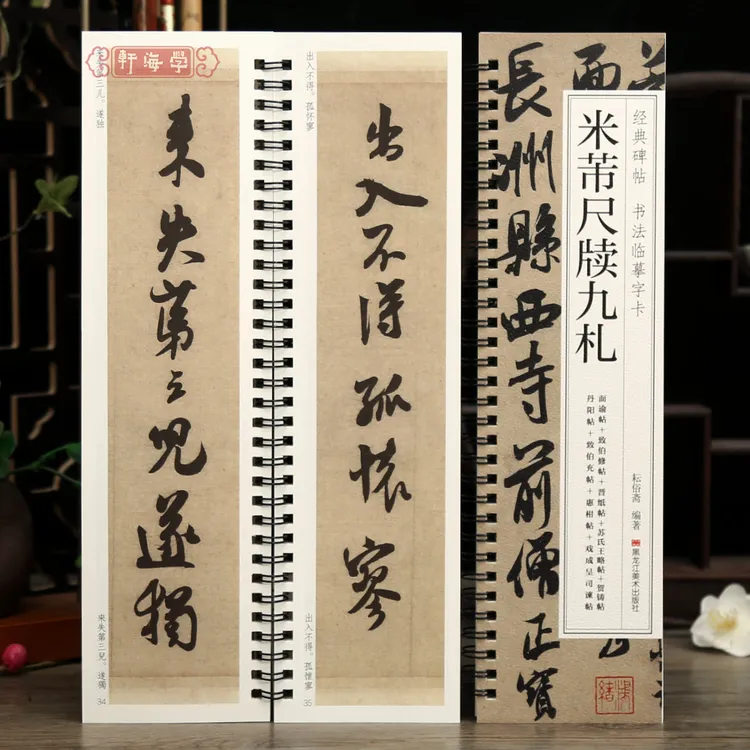 学海軒
三儿。遂独
来失第三儿遂獨
來失第三兒。遂獨
34
出入不得。孤怀寥
出入不得孤懷寥
出入不得。孤懷寥
35
经典碑帖 书法临摹字卡
米芾尺牍九札
面谕帖+致伯修帖+晋纸帖+苏氏王略帖+贺铸帖
丹阳帖+致伯充帖+戏成呈司谏帖
耘俗斋 编著
黑龙江美术出版社
長洲縣西寺前僧正寶
西